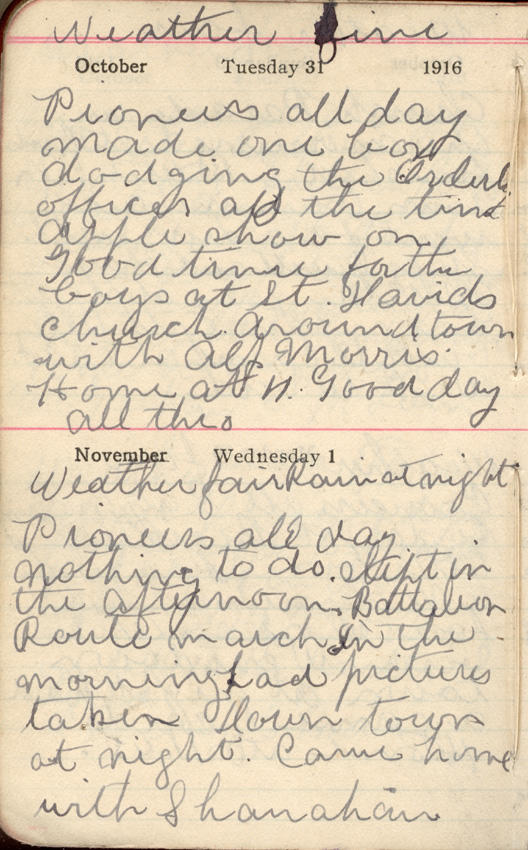 Weather fine
October Tuesday 31 1916
Pioneers all day
made one box
dodging the Orderly
officer all the time
apple show on
Good time for the
boys at St. Davids
church. Around town
with Alf Morris.
Home at 11. Good day
all thro
November Wednesday 1
Weather fair Rain at night
Pioneers all day
nothing to do. Slept in
the afternoon. Battalion
Route march in the
morning had pictures
taken Down town
at night. Came home
with Shanahan